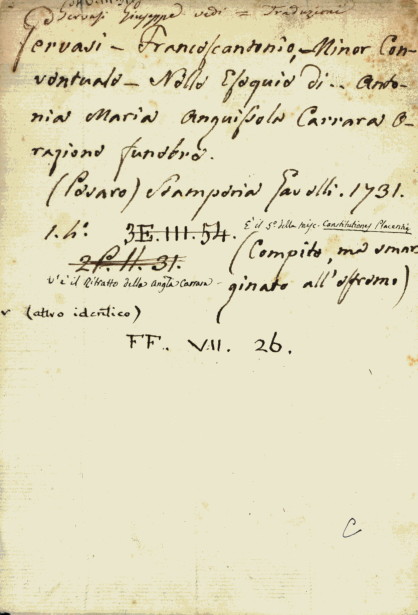 Gervasi Giuseppe vedi = Traduzioni
Gervasi - Francescantonio, Minor Con-
ventuale - Nelle Esequie di .. Anto-
nia Maria Anguissola Carrara O-
razione funebre.
(Pesaro) Stamperia Gavelli. 1731.
1. 4°. 3E. III. 54. È il 5° della misc. Constitutiones Placentię
2P. II. 31. (Compito, ma smar-
V'è il Ritratto della Angla Carrara - ginato all'estremo)
v (altro identico)
FF. VII. 26.
C